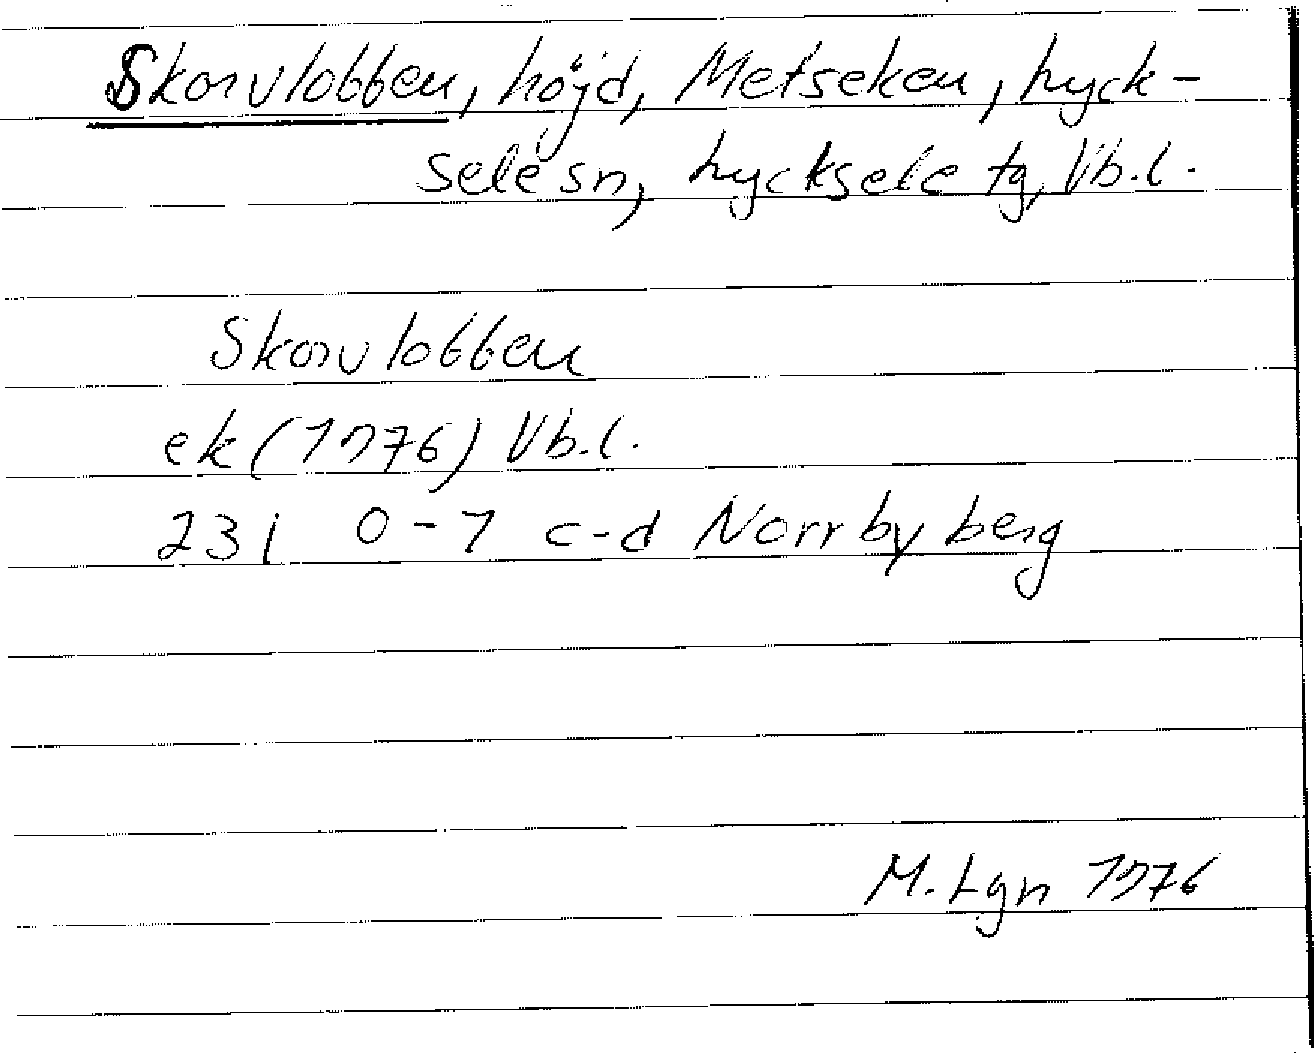 Skorvlobben, höjd, Metseken, Lyck-
sele sn, Lycksele tg, Vb.l.
Skorvlobben
ek (1976) Vb.l.
23 i 0-1 c-d Norrbyberg
M. Lgn 1976